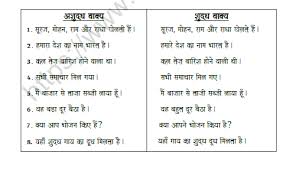 अशुद्ध वाक्य	शुद्ध वाक्य
1. सूरज, मोहन, राम और राधा खेलती हैं।	सूरज, मोहन, राम और राधा खेलते हैं।
2. हमारा देश का नाम भारत है।	हमारे देश का नाम भारत है।
3. कल तेज बारिश होने वाला था।	कल तेज बारिश होने वाली थी।
4. सभी समाचार मिल गया।	सभी समाचार मिल गए।
5. मैं बाजार से ताजा सब्जी लाया हूँ।	मैं बाजार से ताजी सब्जी लाया हूँ।
6. वह बड़ा दूर बैठा है।	वह बहुत दूर बैठा है।
7. क्या आप भोजन किए हैं?	क्या आपने भोजन किया है?
8. यहाँ शुद्ध गाय का दूध मिलता है।	यहाँ गाय का शुद्ध दूध मिलता है।
https://www.